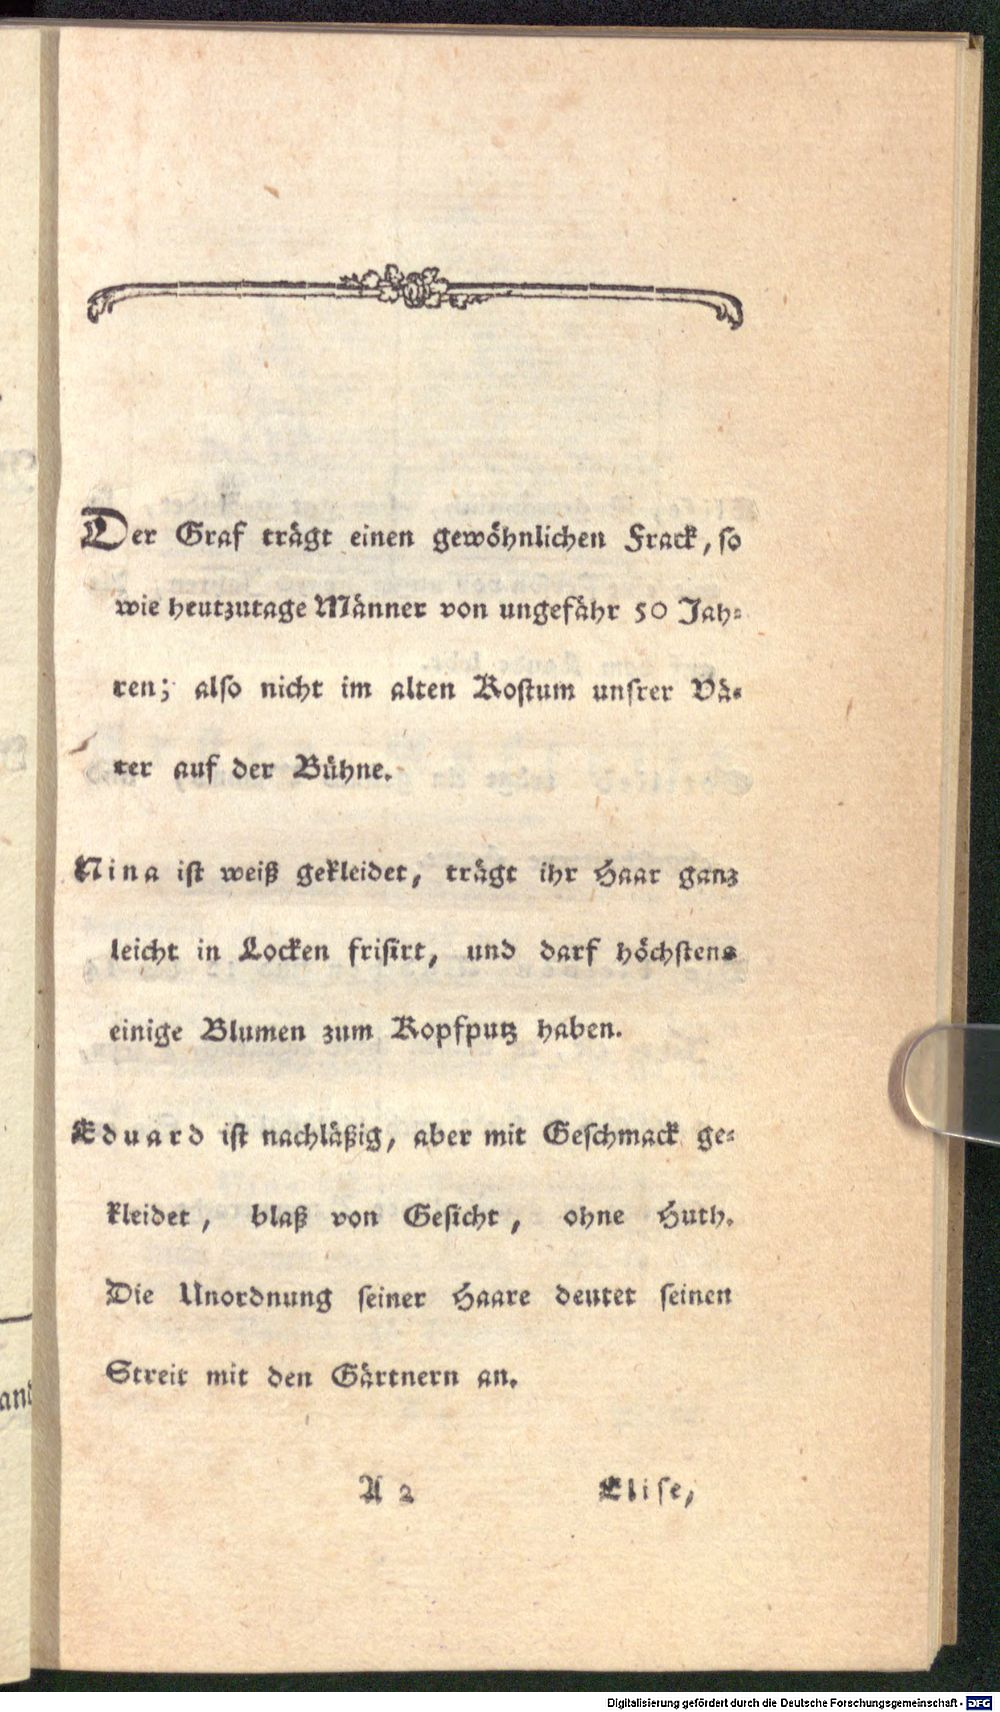 Der Graf trägt einen gewöhnlichen Frack, so
wie heutzutage Männer von ungefähr 50 Jah-
ren; also nicht im alten Kostum unsrer Vä-
ter auf der Bühne.
Nina ist weiß gekleidet, trägt ihr Haar ganz
leicht in Locken frisirt, und darf höchstens
einige Blumen zum Kopfputz haben.
Eduard ist nachläßig, aber mit Geschmack ge-
kleidet, blaß von Gesicht, ohne Huth.
Die Unordnung seiner Haare deutet seinen
Streit mit den Gärtnern an.
A 2 Elise,
Digitalisierung gefördert durch die Deutsche Forschungsgemeinschaft - DFG